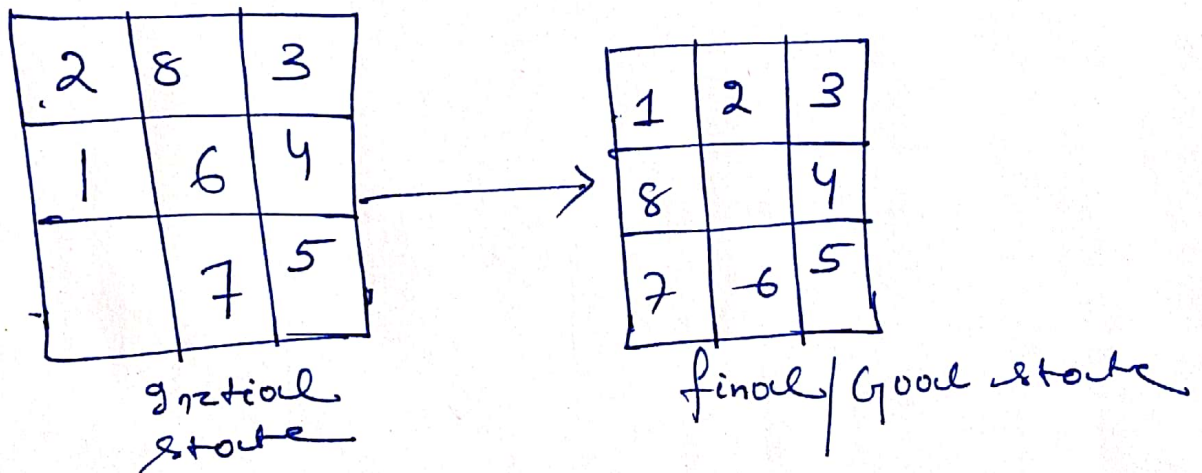 2 8 3
1 6 4
7 5
Initial
state
1 2 3
8 4
7 6 5
final/Goal state